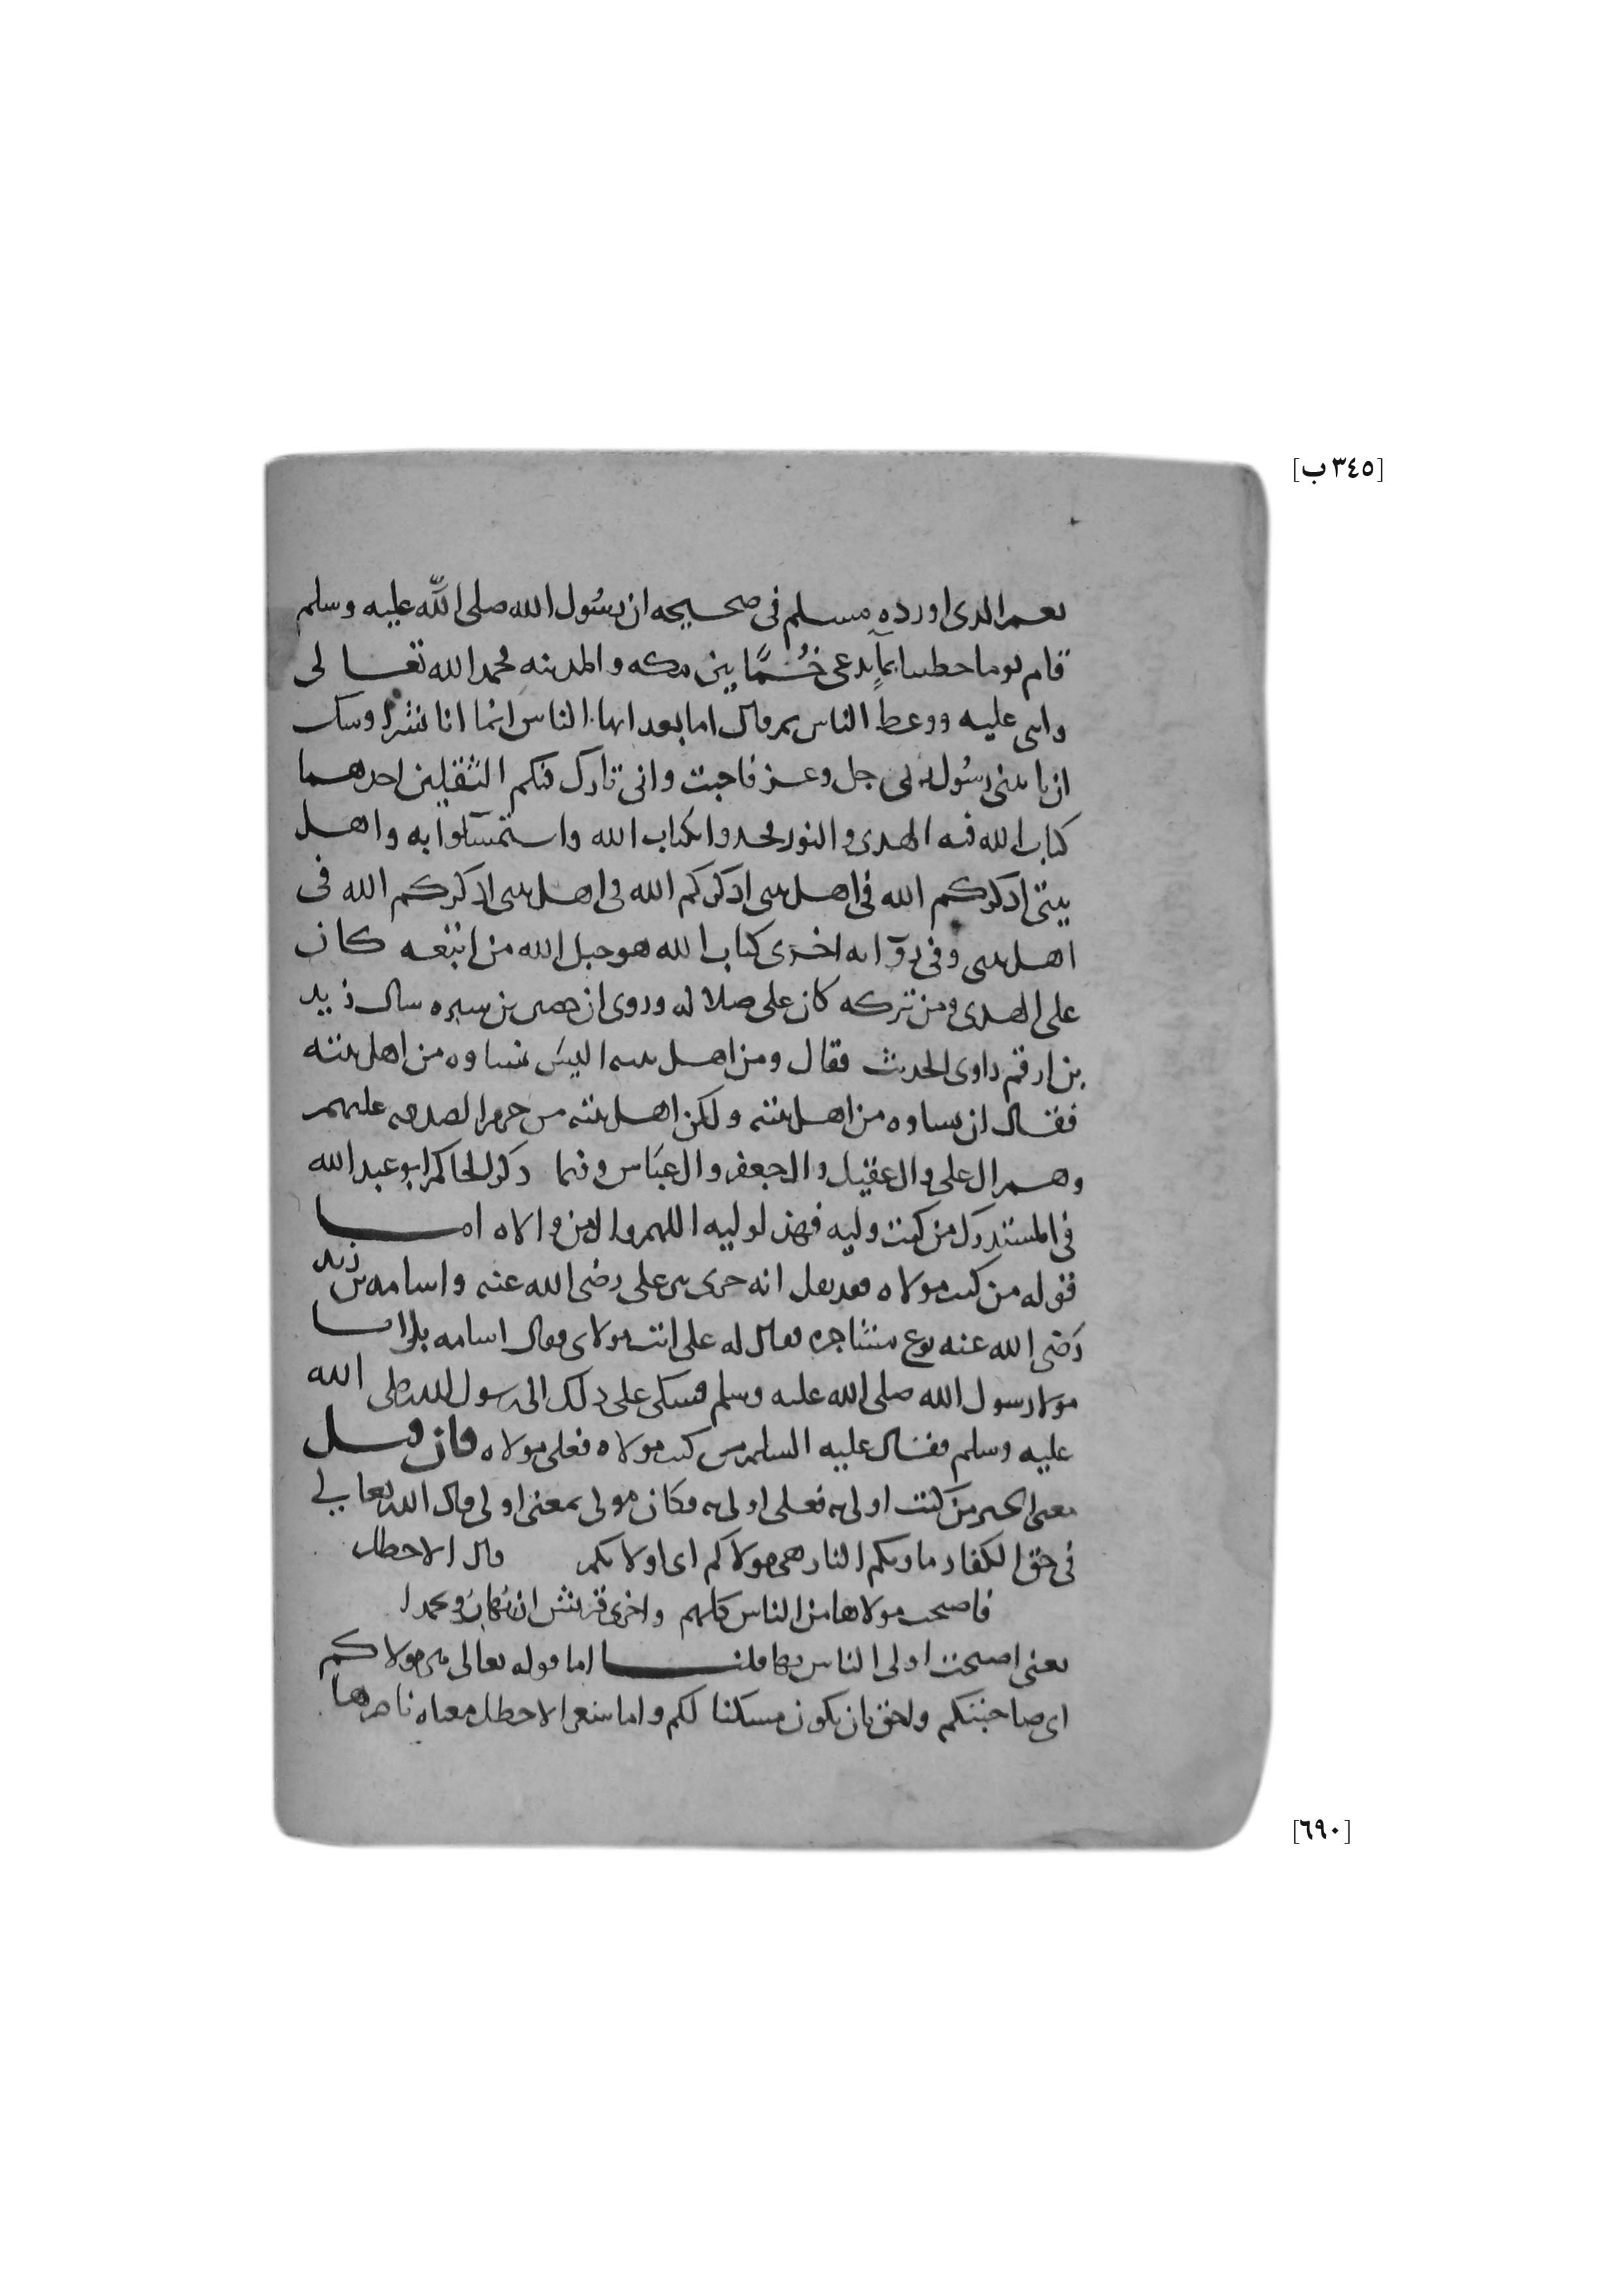 [٣٤٥ ب]
نعم الذي اورده مسلم في صحيحه ان رسول الله صلى الله عليه وسلم
قام يوما خطيبا بماء يدعى خُمًّا بين مكه والمدينه فحمد الله تعالى
واثنى عليه ووعظ الناس ثم قال اما بعد ايها الناس انما انا بشر اوشك
ان ياتيني رسول ربي جل وعز فاجبت واني تارك فيكم الثقلين احدهما
كتاب الله فيه الهدى والنور فخذوا بكتاب الله واستمسكوا به واهل
بيتي اذكركم الله في اهل بيتي اذكركم الله في اهل بيتي اذكركم الله في
اهل بيتي وفي روايه اخرى كتاب الله هو حبل الله من اتبعه كان
على الهدى ومن تركه كان على ضلاله وروي ان حصين بن سبره سال زيد
بن ارقم راوي الحديث فقال ومن اهل بيته اليس نساوه من اهل بيته
فقال ان نساوه من اهل بيته ولكن اهل بيته من حرم الصدقه عليهم
وهم ال علي وال عقيل وال جعفر وال عباس وفيما ذكر الحاكم ابو عبد الله
في المستدرك من كنت وليه فهذا وليه اللهم وال من والاه اما
قوله من كنت مولاه فقد نقل انه جرى بين علي رضي الله عنه واسامه بن زيد
رضي الله عنه نوع مشاجره فقال له علي انت مولاي فقال اسامه بل انا
مولا رسول الله صلى الله عليه وسلم فشكى علي ذلك الى رسول الله صلى الله
عليه وسلم فقال عليه السلم من كنت مولاه فعلي مولاه فان قيل
معنى الخبر من كنت اولى به فعلي اولى به فكان مولى بمعنى اولى قال الله تعالى
في حق الكفار ماويكم النار هي مولاكم اي اولا بكم قال الاخطل
فاصبحت مولاها من الناس كلهم واحرى قريش ان تهاب وتحمدا
يعني اصبحت اولى الناس بها قلنا اما قوله تعالى هي مولاكم
اي صاحبتكم ولحق بان يكون مسكنا لكم واما شعر الاخطل معناه ناصرها
[٦٩٠]